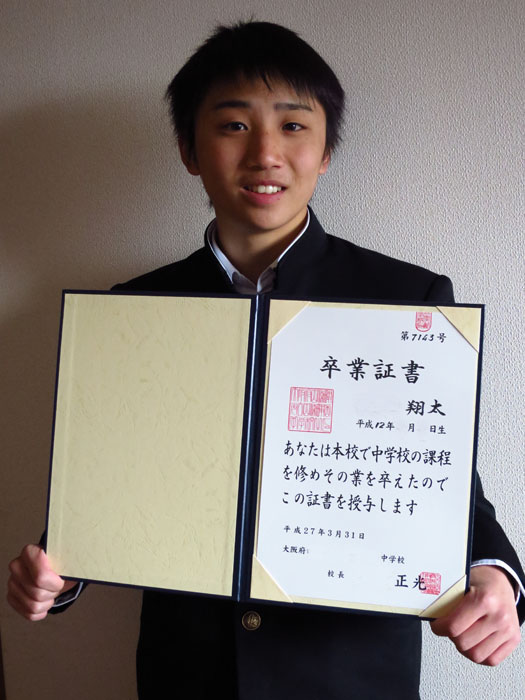 第7143号
卒業証書
翔太
平成12年 月 日生
あなたは本校で中学校の課程
を修めその業を卒えたので
この証書を授与します
平成27年3月31日
大阪府 中学校
校長 正光